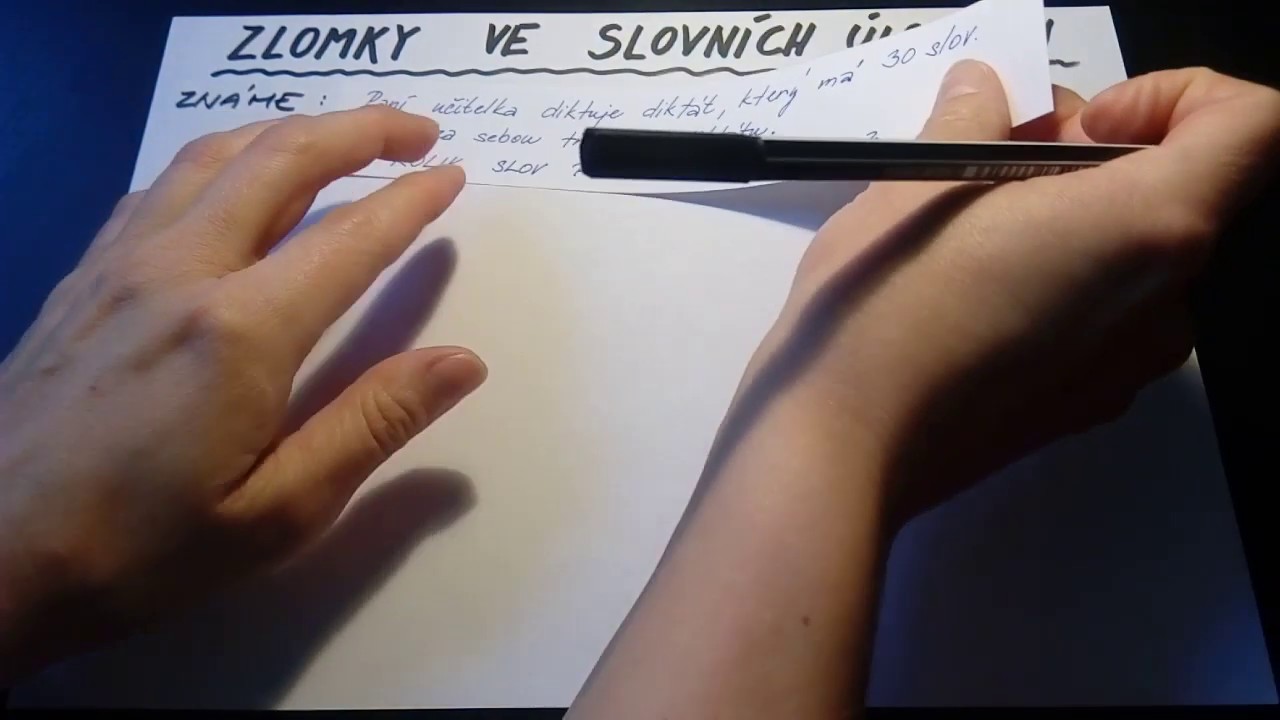 ZLOMKY VE SLOVNÍCH
ZNÁME: Paní učitelka diktuje diktát, který má 30 slov.
za sebou
KOLIK SLOV ?